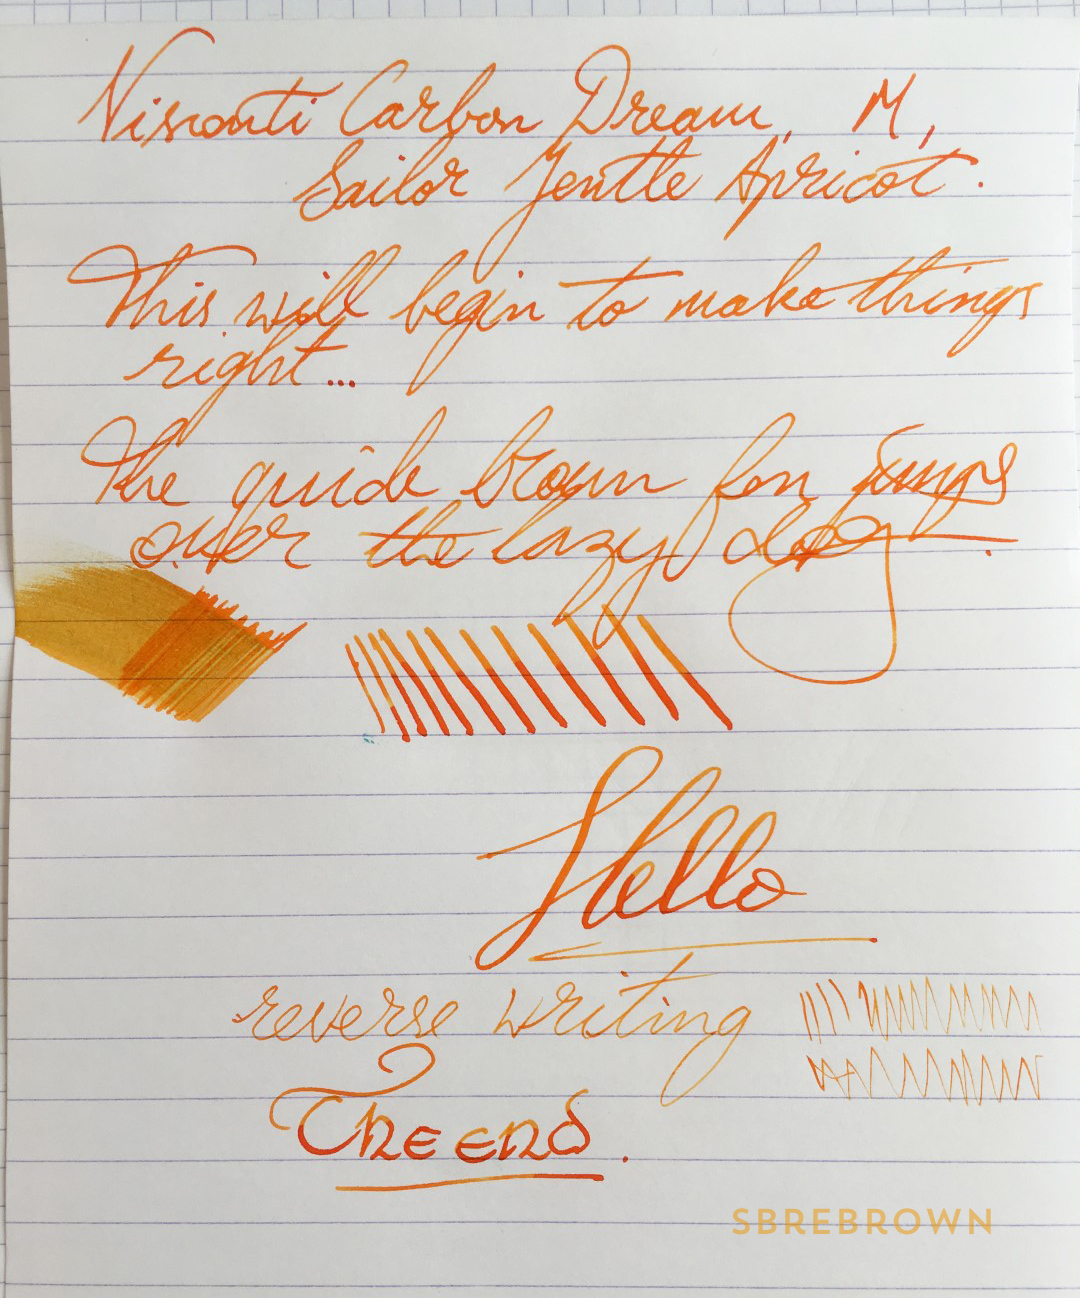 Visconti Carbon Dream, M,
Sailor Jentle Apricot.
This will begin to make things
right...
The quick brown fox jumps
over the lazy dog.
Hello
reverse writing
The end.
SBREBROWN